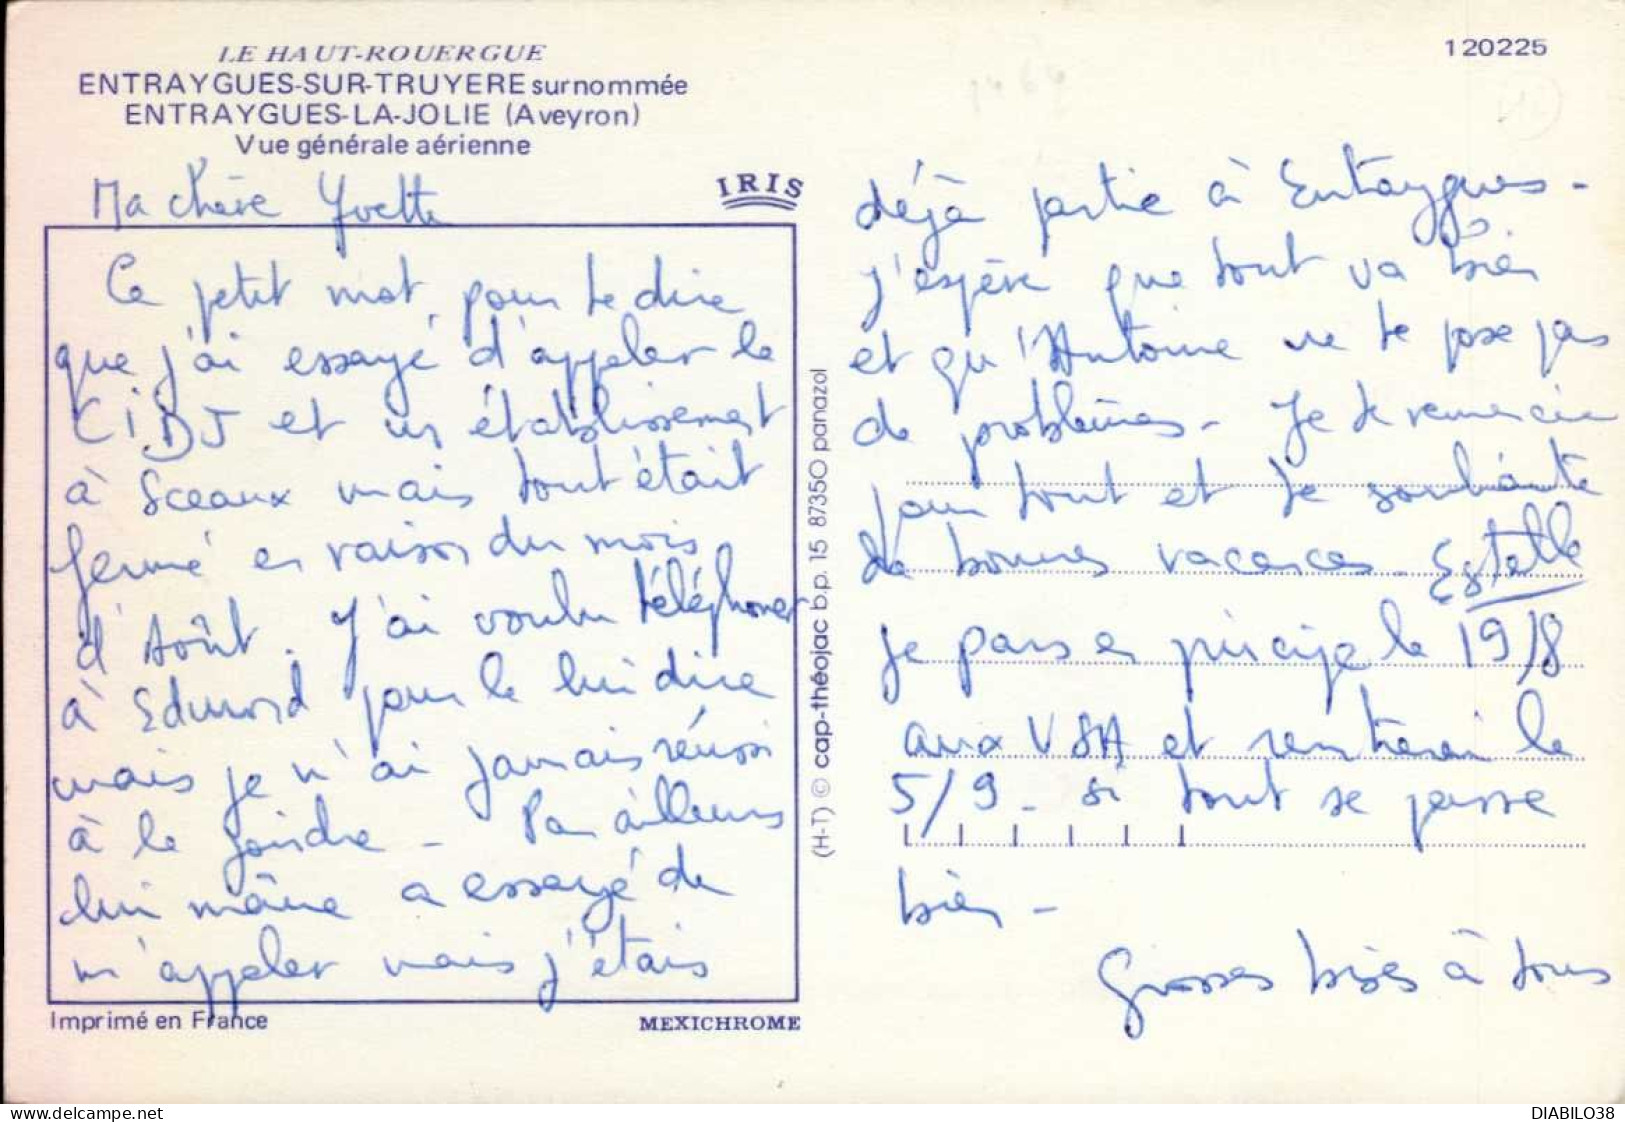 LE HAUT-ROUERGUE
ENTRAYGUES-SUR-TRUYERE surnommée
ENTRAYGUES-LA-JOLIE (Aveyron)
Vue générale aérienne
120225
IRIS
Ma chère Yvette
Ce petit mot pour te dire
que j'ai essayé d'appeler le
CIDJ et un établissement
à Sceaux mais tout était
fermé en raison du mois
d'Août. J'ai voulu téléphoner
à Edward pour le lui dire
mais je n'ai jamais réussi
à le joindre - Par ailleurs
lui même a essayé de
m'appeler mais j'étais
déjà partie à Entraygues -
j'espère que tout va bien
et qu'Antoine ne te pose pas
de problèmes - Je te remercie
pour tout et te souhaite
de bonnes vacances - Estelle
Je pars en principe le 19/8
aux USA et rentrerai le
5/9 - si tout se passe
bien -
Grosses bises à tous
(H-T) © cap-théojac b.p. 15 87350 panazol
Imprimé en France
MEXICHROME
www.delcampe.net
DIABILO38